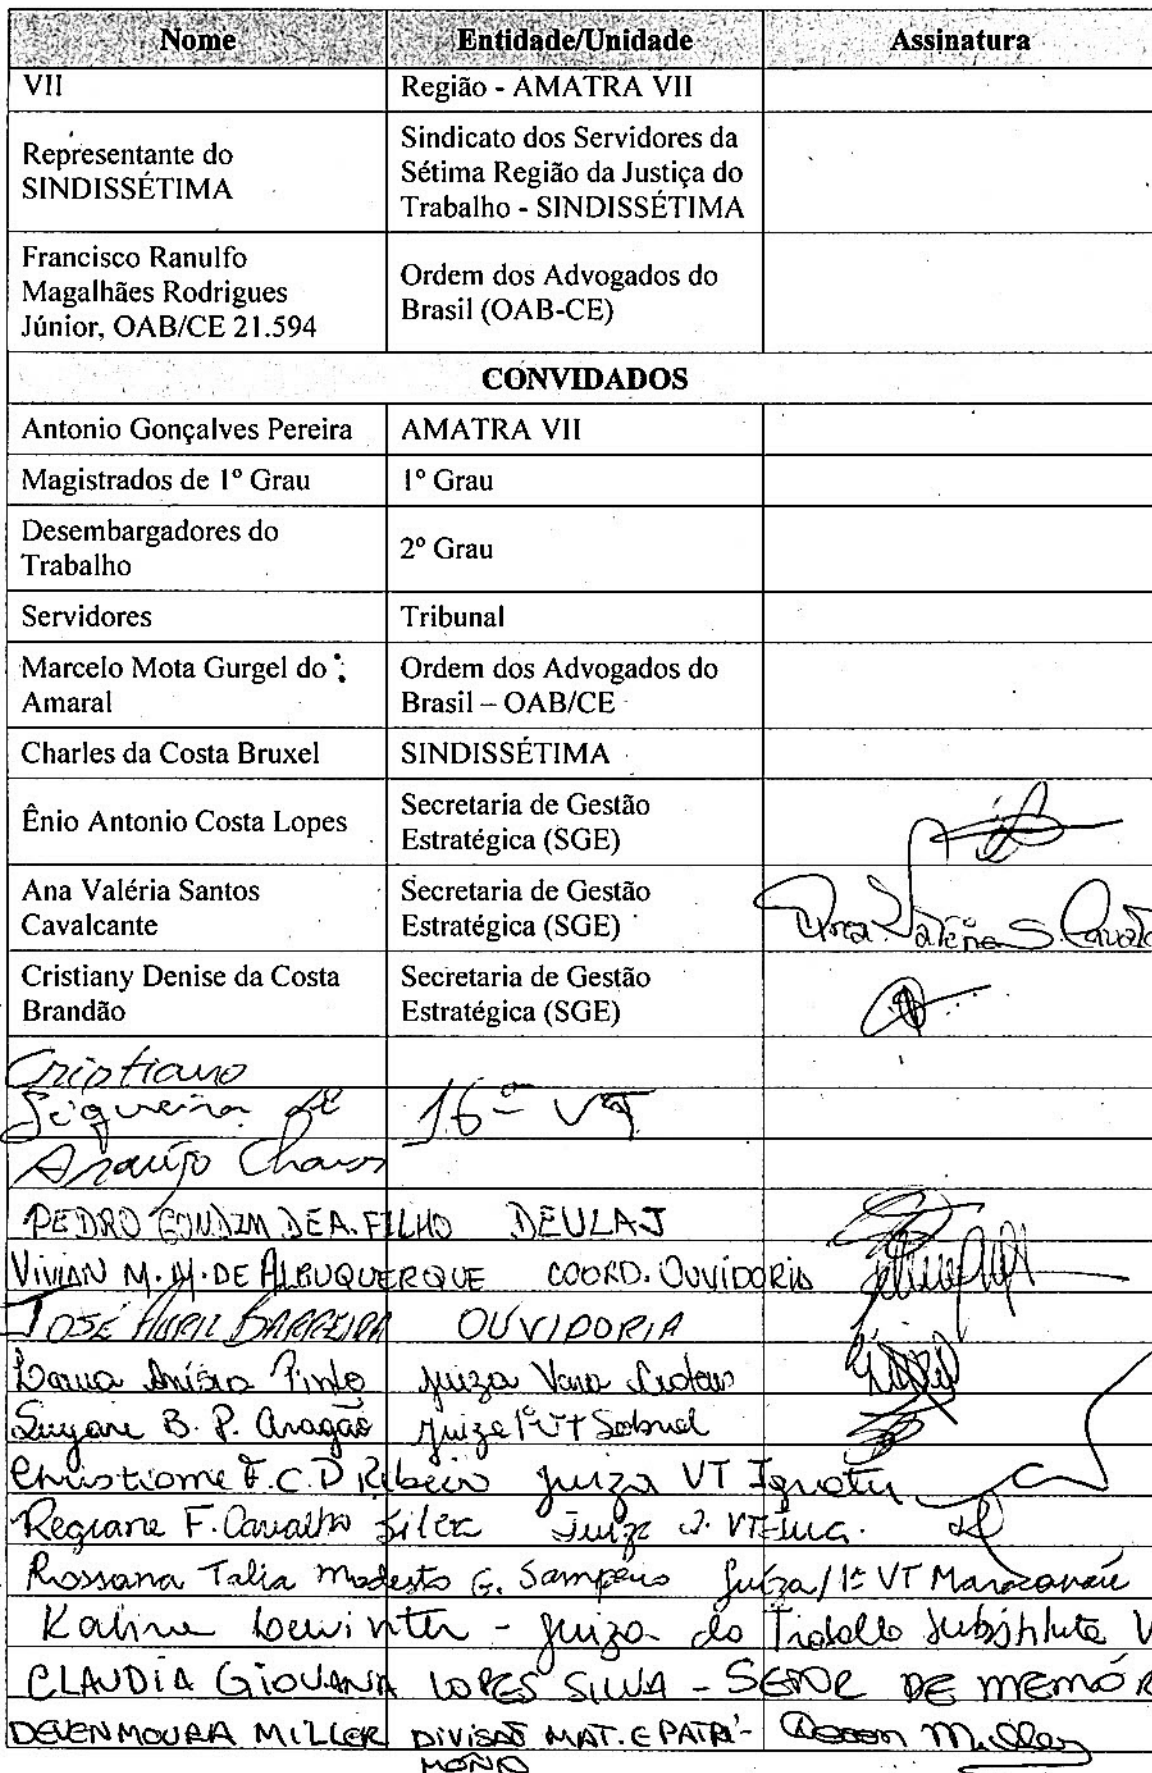 Nome Entidade/Unidade Assinatura
VII Região - AMATRA VII
Representante do
SINDISSÉTIMA
Sindicato dos Servidores da
Sétima Região da Justiça do
Trabalho - SINDISSÉTIMA
Francisco Ranulfo
Magalhães Rodrigues
Júnior, OAB/CE 21.594
Ordem dos Advogados do
Brasil (OAB-CE)
CONVIDADOS
Antonio Gonçalves Pereira AMATRA VII
Magistrados de 1º Grau 1º Grau
Desembargadores do
Trabalho
2º Grau
Servidores Tribunal
Marcelo Mota Gurgel do
Amaral
Ordem dos Advogados do
Brasil – OAB/CE
Charles da Costa Bruxel SINDISSÉTIMA
Ênio Antonio Costa Lopes
Secretaria de Gestão
Estratégica (SGE)
Ana Valéria Santos
Cavalcante
Secretaria de Gestão
Estratégica (SGE)
Ana Valéria S. Cavalc
Cristiany Denise da Costa
Brandão
Secretaria de Gestão
Estratégica (SGE)
Cristiano
Siqueira de
Araújo Chaves
16ª VT
PEDRO GONDIM DE A. FILHO DEULAJ
VIVIAN M. M. DE ALBUQUERQUE COORD. OUVIDORIA
JOSÉ BARREIRA OUVIDORIA
Pinto Juiza Vara
B. P. Aragão Juiza 1ª VT Sobral
Christiane F. C. D Ribeiro Juiza VT Iguatu
Regiane F. Carvalho Silva Juiza VT
Rossana Talia Modesto G. Sampaio Juíza / 1ª VT Maracanaú
Kaline Lewinter - Juiza do Trabalho Substituta V
CLAUDIA GIOVANA LOPES SILVA - SETOR DE MEMÓR
DEVEN MOURA MILLER DIVISÃO MAT. E PATRI-
MÔNIO
Deven Miller